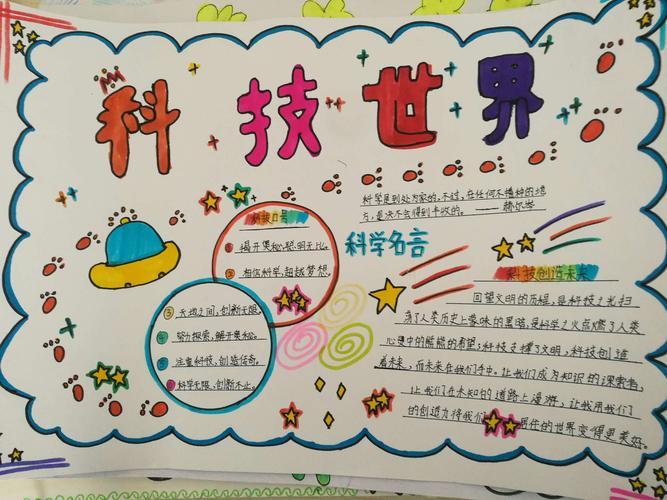 科技世界
科学是到处为家的,不过,在任何不播种的地
方,是决不会得到丰收的。——赫尔岑
科学名言
科技口号
① 揭开奥秘,聪明无比。
② 相信科学,超越梦想。
③ 天地之间,创新无限。
④ 努力探索,解开奥秘。
⑤ 注重科技,创造传奇。
⑥ 科学无限,创新不止。
科技创造未来
回望文明的历程,是科技之光扫
荡了人类历史上蒙昧的黑暗,是科学之火点燃了人类
心灵中的熊熊的希望;科技支撑了文明,科技创造
着未来,而未来在我们手中。让我们成为知识的探索者,
让我们在未知的道路上漫游,让我用我们
的创造力将我们居住的世界变得更美好。